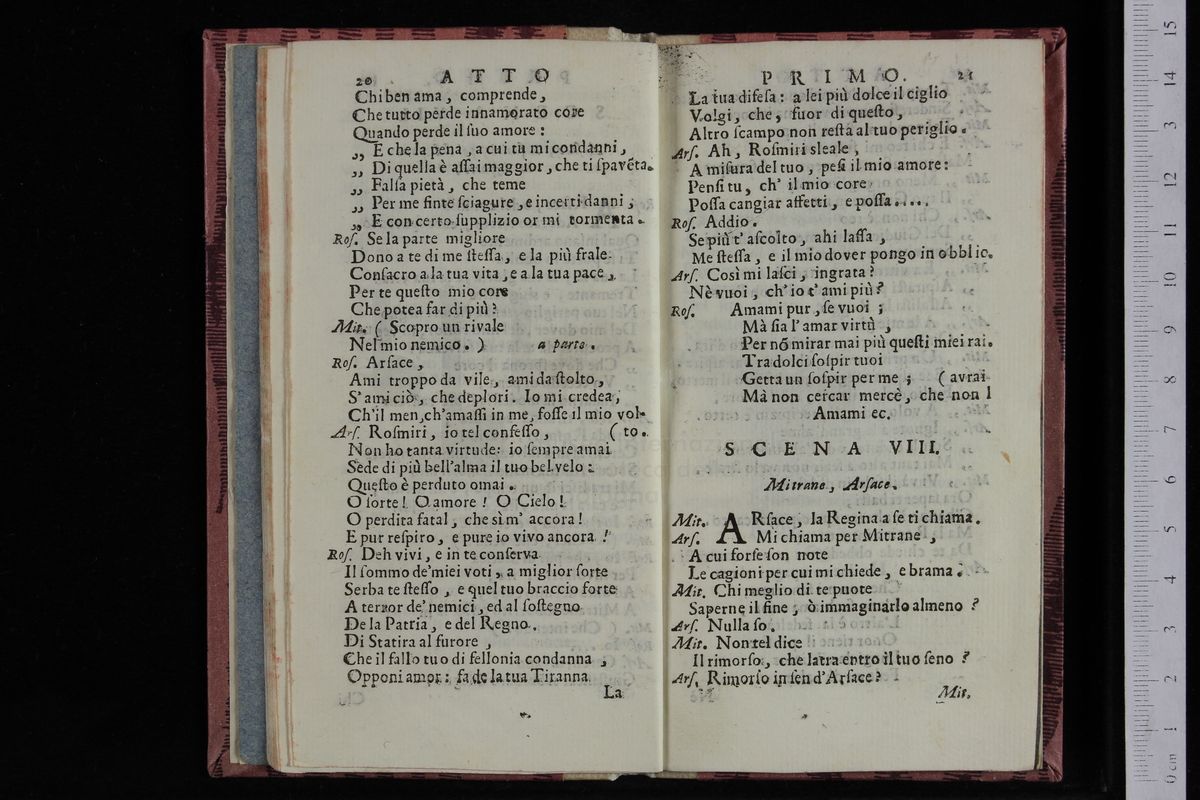 20 ATTO
Chi ben ama, comprende,
Che tutto perde innamorato core
Quando perde il ſuo amore:
„ E che la pena, a cui tu mi condanni,
„ Di quella è aſſai maggior, che ti ſpavẽta.
„ Falſa pietà, che teme
„ Per me finte ſciagure, e incerti danni;
„ E con certo ſupplizio or mi tormenta.
Roſ. Se la parte migliore
Dono a te di me ſteſſa, e la più frale
Conſacro a la tua vita, e a la tua pace,
Per te queſto mio core
Che potea far di più?
Mit. ( Scopro un rivale
Nel mio nemico. ) a parte.
Roſ. Arſace,
Ami troppo da vile, ami da ſtolto,
S'ami ciò, che deplori. Io mi credea,
Ch'il men, ch'amaſſi in me, foſſe il mio vol-
Arſ. Roſmiri, io tel confeſſo, ( to.
Non ho tanta virtude: io ſempre amai
Sede di più bell'alma il tuo bel velo:
Queſto è perduto omai.
O ſorte! O amore! O Cielo!
O perdita fatal, che sì m' accora!
E pur reſpiro, e pure io vivo ancora!
Roſ. Deh vivi, e in te conſerva
Il ſommo de'miei voti, a miglior ſorte
Serba te ſteſſo, e quel tuo braccio forte
A terror de'nemici, ed al ſoſtegno
De la Patria, e del Regno.
Di Statira al furore,
Che il fallo tuo di fellonia condanna,
Opponi amor: fa de la tua Tiranna
La
PRIMO. 21
La tua difeſa: a lei più dolce il ciglio
Volgi, che, fuor di queſto,
Altro ſcampo non reſta al tuo periglio.
Arſ. Ah, Roſmiri sleale,
A miſura del tuo, peſi il mio amore:
Penſi tu, ch' il mio core
Poſſa cangiar affetti, e poſſa....
Roſ. Addio.
Se più t' aſcolto, ahi laſſa,
Me ſteſſa, e il mio dover pongo in obblio.
Arſ. Così mi laſci, ingrata?
Nè vuoi, ch'io t'ami più?
Roſ. Amami pur, ſe vuoi;
Mà ſia l'amar virtù,
Per nõ mirar mai più queſti miei rai.
Tra dolci ſoſpir tuoi
Getta un ſoſpir per me; ( avrai
Mà non cercar mercè, che non l
Amami ec.
SCENA VIII.
Mitrane, Arſace.
Mit. ARſace, la Regina a ſe ti chiama.
Arſ. Mi chiama per Mitrane,
A cui forſe ſon note
Le cagioni per cui mi chiede, e brama.
Mit. Chi meglio di te puote
Saperne il fine, ò immaginarlo almeno?
Arſ. Nulla ſo.
Mit. Non tel dice
Il rimorſo, che latra entro il tuo ſeno?
Arſ. Rimorſo in ſen d'Arſace?
Mit.
0 cm 1 2 3 4 5 6 7 8 9 10 11 12 13 14 15